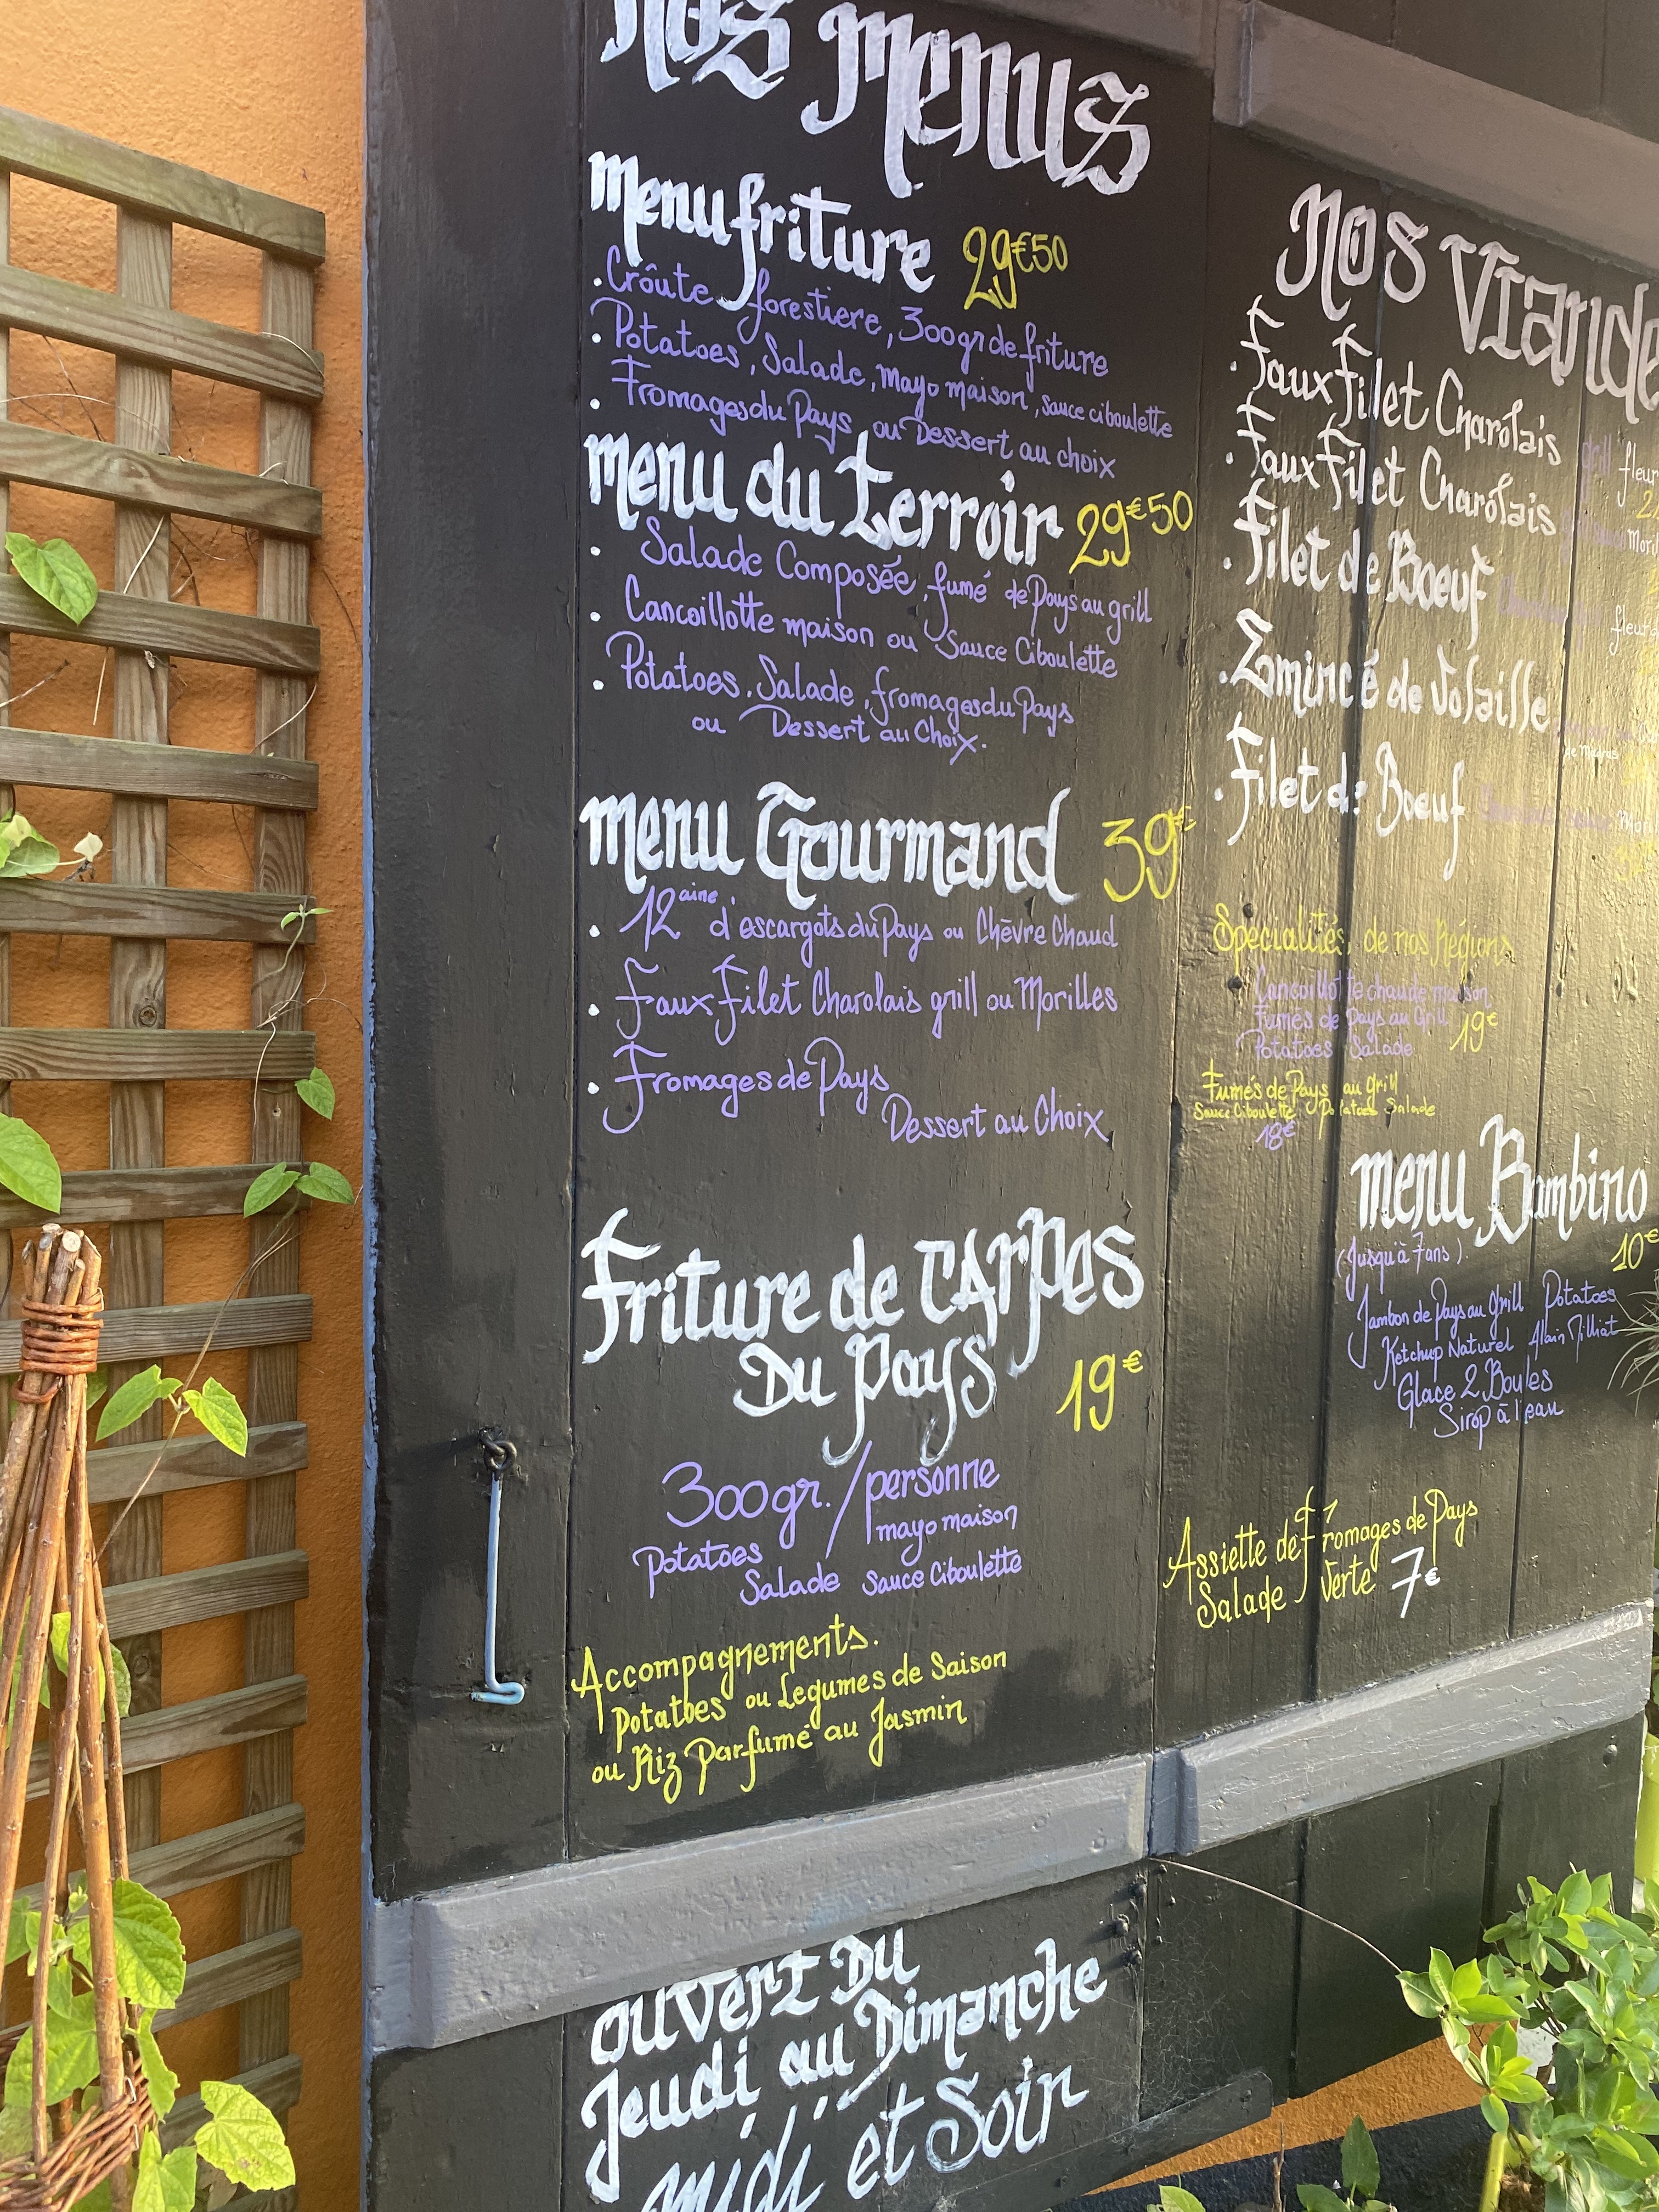 Nos Menus
menu friture 29€50
. Croûte forestiere, 300gr de friture
. Potatoes, Salade, mayo maison, sauce ciboulette
. Fromages du Pays ou Dessert au choix
menu du terroir 29€50
. Salade Composée, fumé de Pays au grill
. Cancoillotte maison ou Sauce Ciboulette
. Potatoes, Salade, fromages du Pays
ou Dessert au Choix.
menu Gourmand 39€
. 12aine d'escargots du Pays ou Chèvre Chaud
. Faux Filet Charolais grill ou Morilles
. Fromages de Pays
Dessert au Choix
Friture de CArpes
Du Pays 19€
300gr. / personne
mayo maison
Potatoes
Salade Sauce Ciboulette
Accompagnements.
Potatoes ou Legumes de Saison
ou Riz Parfumé au Jasmin
ouvert Du
Jeudi au Dimanche
midi et Soir
Nos Viande
. Faux Filet Charolais grill fleur
. Faux Filet Charolais
. Filet de Boeuf
. Emincé de Volaille
. Filet de Boeuf
Spécialités de nos Régions
Cancoillotte chaude maison
Fumés de Pays au Grill 19€
Potatoes Salade
Fumés de Pays au grill
Sauce Ciboulette Potatoes Salade
18€
menu Bambino
(Jusqu'à 7 ans). 10€
Jambon de Pays au Grill Potatoes
Ketchup Naturel Alain Milliat
Glace 2 Boules
Sirop à l'eau
Assiette de Fromages de Pays
Salade Verte 7€